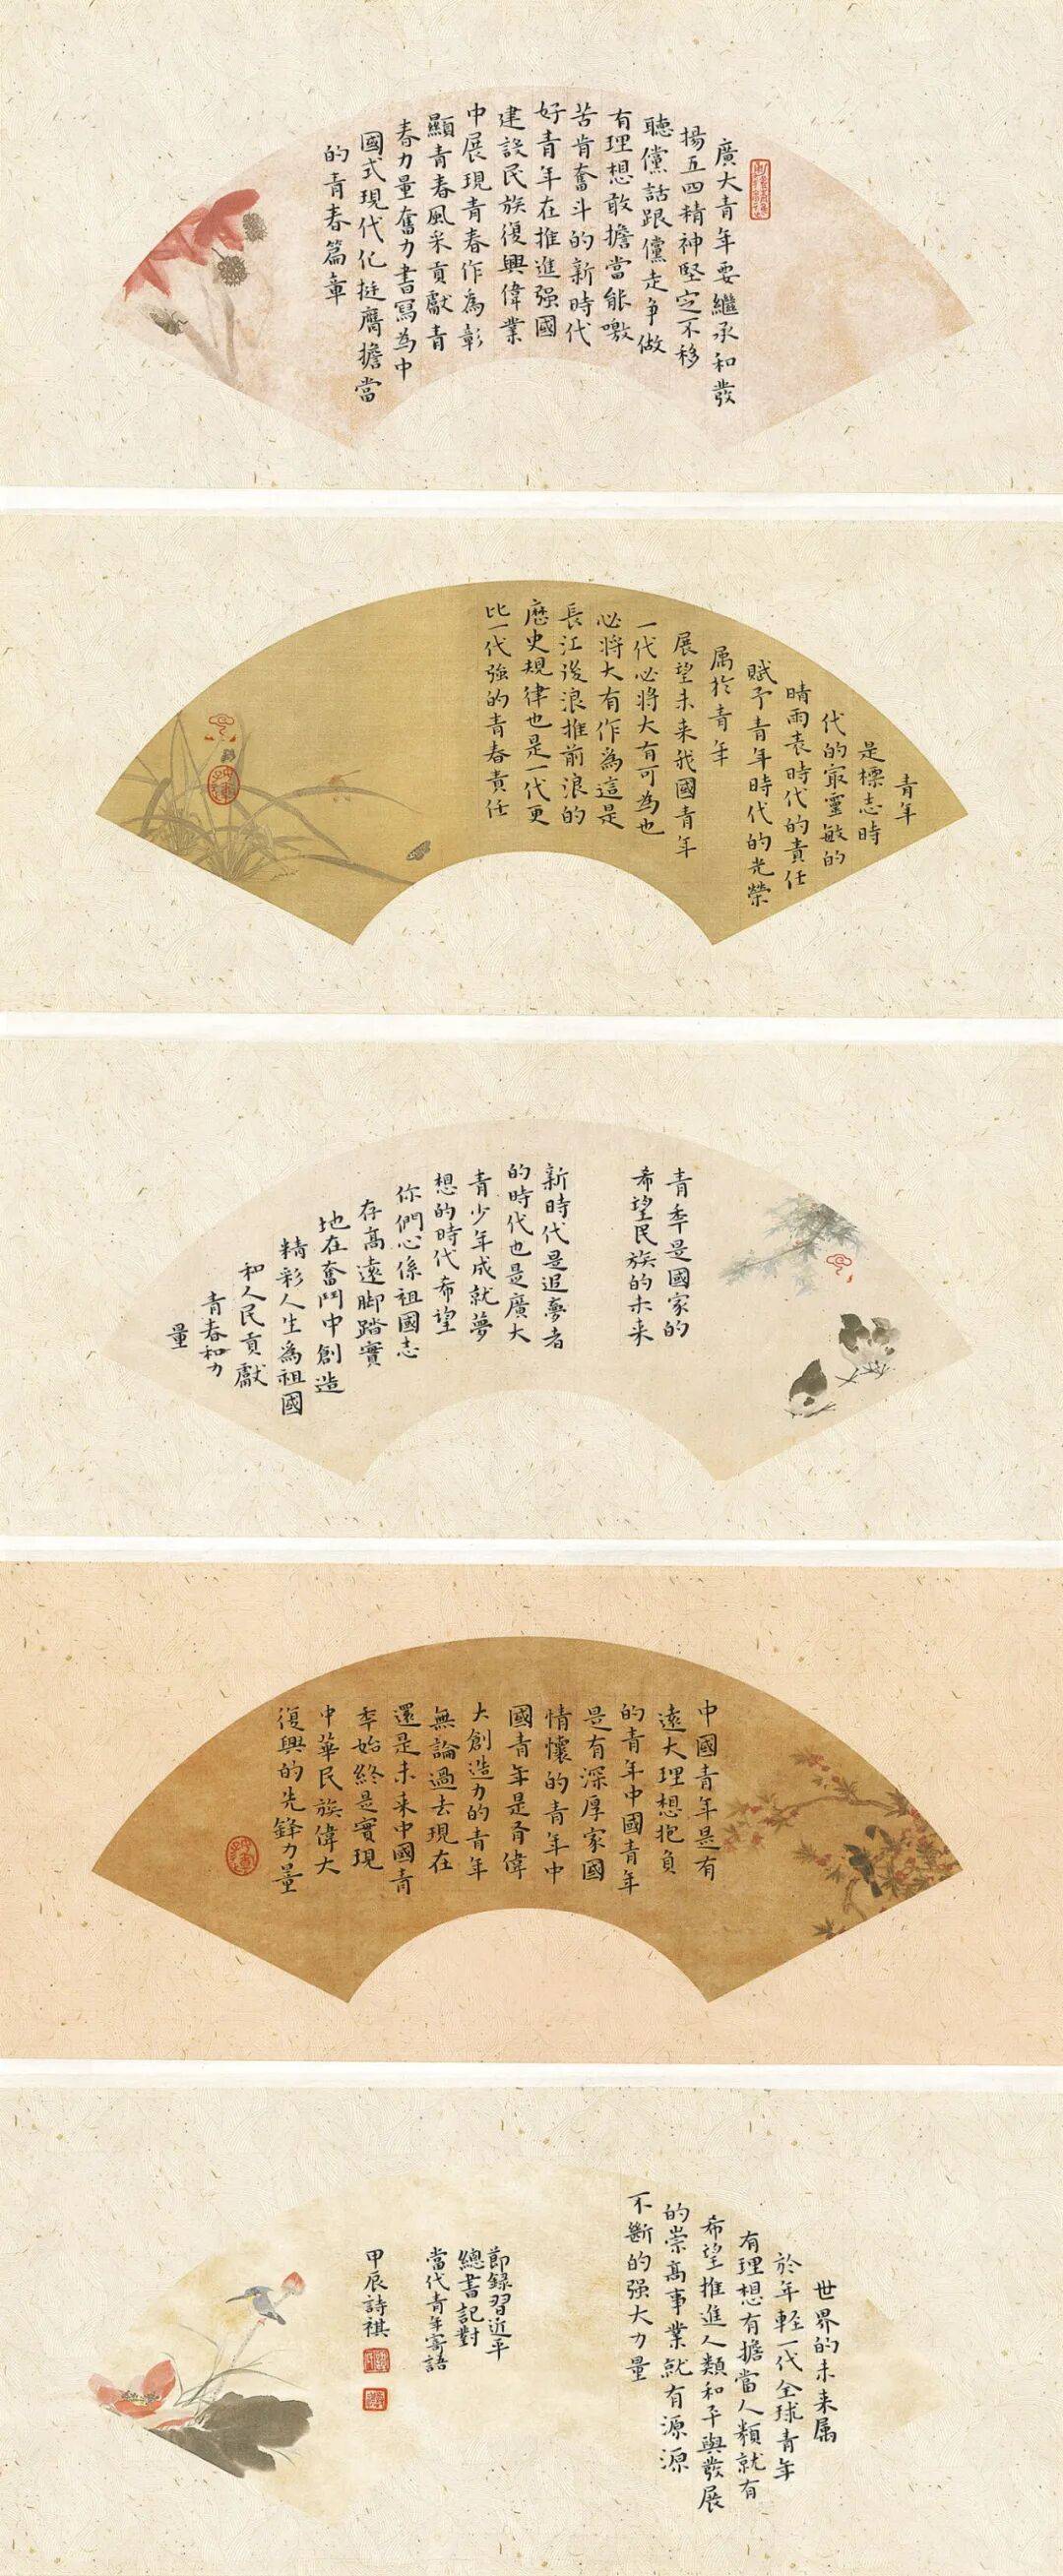 廣大青年要繼承和發
揚五四精神堅定不移
聽黨話跟黨走爭做
有理想敢擔當能喫
苦肯奮斗的新時代
好青年在推進强國
建設民族復興偉業
中展現青春作為彰
顯青春風采貢獻青
春力量奮力書寫為中
國式現代化挺膺擔當
的青春篇章
青年
是標志時
代的最靈敏的
晴雨表時代的責任
賦予青年時代的光榮
属於青年
展望未来我國青年
一代必將大有可為也
必將大有作為這是
長江後浪推前浪的
歷史規律也是一代更
比一代強的青春責任
青年是國家的
希望民族的未来
新時代是追夢者
的時代也是廣大
青少年成就夢
想的時代希望
你們心係祖國志
存高遠脚踏實
地在奮鬥中創造
精彩人生為祖國
和人民貢獻
青春和力
量
中國青年是有
遠大理想抱負
的青年中國青年
是有深厚家國
情懷的青年中
國青年是有偉
大創造力的青年
無論過去現在
還是未来中國青
年始終是實現
中華民族偉大
復興的先鋒力量
世界的未来属
於年輕一代全球青年
有理想有擔當人類就有
希望推進人類和平與發展
的崇高事業就有源源
不斷的强大力量
節録習近平
總書記對
當代青年寄語
甲辰詩祺